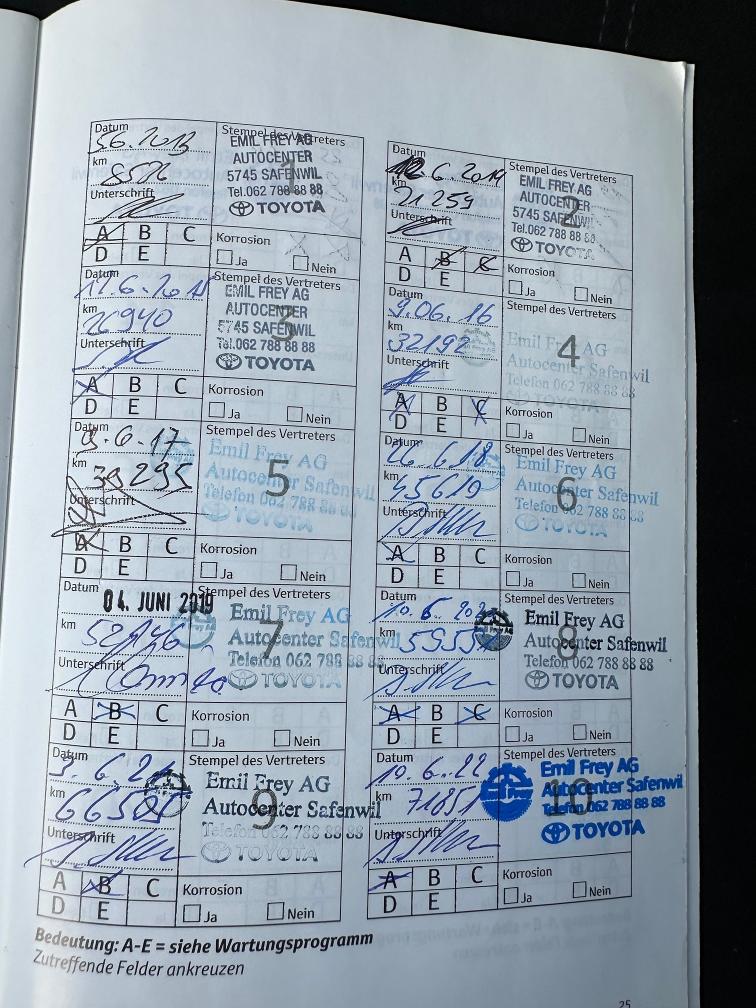 Datum
5.6.2013
km
8526
Unterschrift
Stempel des Vertreters
1
EMIL FREY AG
AUTOCENTER
5745 SAFENWIL
Tel.062 788 88 88
TOYOTA
A B C
D E
Korrosion
Ja Nein
Datum
12.6.2014
km
21259
Unterschrift
Stempel des Vertreters
2
EMIL FREY AG
AUTOCENTER
5745 SAFENWIL
Tel.062 788 88 88
TOYOTA
A B C
D E
Korrosion
Ja Nein
Datum
km
26940
Unterschrift
Stempel des Vertreters
3
EMIL FREY AG
AUTOCENTER
5745 SAFENWIL
Tel.062 788 88 88
TOYOTA
A B C
D E
Korrosion
Ja Nein
Datum
9.06.16
km
32192
Unterschrift
Stempel des Vertreters
4
Emil Frey AG
Autocenter Safenwil
Telefon 062 788 88 88
A B C
D E
Korrosion
Ja Nein
Datum
9.6.17
km
39295
Unterschrift
Stempel des Vertreters
5
Emil Frey AG
Autocenter Safenwil
Telefon 062 788 88 88
TOYOTA
A B C
D E
Korrosion
Ja Nein
Datum
26.6.18
km
45610
Unterschrift
Stempel des Vertreters
6
Emil Frey AG
Autocenter Safenwil
Telefon 062 788 88 88
TOYOTA
A B C
D E
Korrosion
Ja Nein
Datum
04. JUNI 2019
km
Unterschrift
Stempel des Vertreters
7
Emil Frey AG
Autocenter Safenwil
Telefon 062 788 88 88
TOYOTA
A B C
D E
Korrosion
Ja Nein
Datum
km
Unterschrift
Stempel des Vertreters
8
Emil Frey AG
Autocenter Safenwil
Telefon 062 788 88 88
TOYOTA
A B C
D E
Korrosion
Ja Nein
Datum
3.6.21
km
Unterschrift
Stempel des Vertreters
9
Emil Frey AG
Autocenter Safenwil
Telefon 062 788 88 88
TOYOTA
A B C
D E
Korrosion
Ja Nein
Datum
10.6.22
km
71651
Unterschrift
Stempel des Vertreters
10
Emil Frey AG
Autocenter Safenwil
Telefon 062 788 88 88
TOYOTA
A B C
D E
Korrosion
Ja Nein
Bedeutung: A-E = siehe Wartungsprogramm
Zutreffende Felder ankreuzen
25